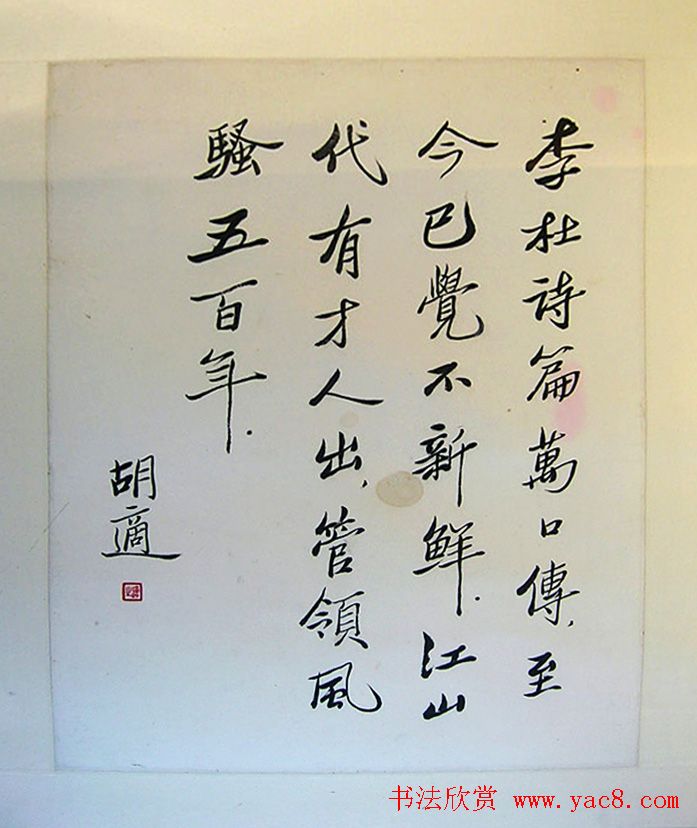 李杜詩篇萬口傳,至
今已覺不新鮮.江山
代有才人出,管領風
騷五百年.
胡適
书法欣赏 www.yac8.com